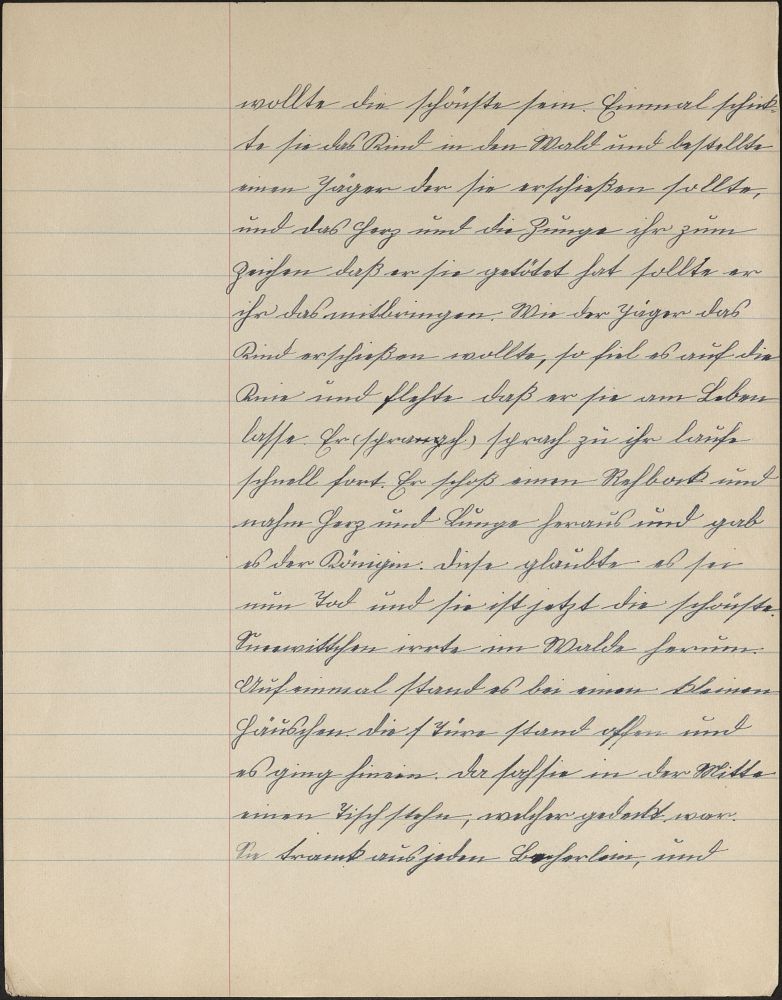 wollte die schönste sein. Einmal schick-
te sie das Kind in den Wald und bestellte
einen Jäger der sie erschießen sollte,
und das Herz und die Zunge ihr zum
Zeichen daß er sie getötet hat sollte er
ihr das mitbringen. Wie der Jäger das
Kind erschießen wollte, so fiel es auf die
Knie und flehte daß er sie am Leben
lasse. Er (sprangch) sprach zu ihr laufe
schnell fort. Er schoß einen Rehbock und
nahm Herz und Lunge heraus und gab
es der Königin. Diese glaubte es sei
nun Tod und sie ist jetzt die schönste.
Sneewittchen irrte im Walde herum.
Auf einmal stand es bei einen kleinen
Häuschen. Die Türe stand offen und
es ging hinein. Da sah sie in der Mitte
einen Tisch stehn, welcher gedeckt war.
Sie trank aus jeden Becherlein, und